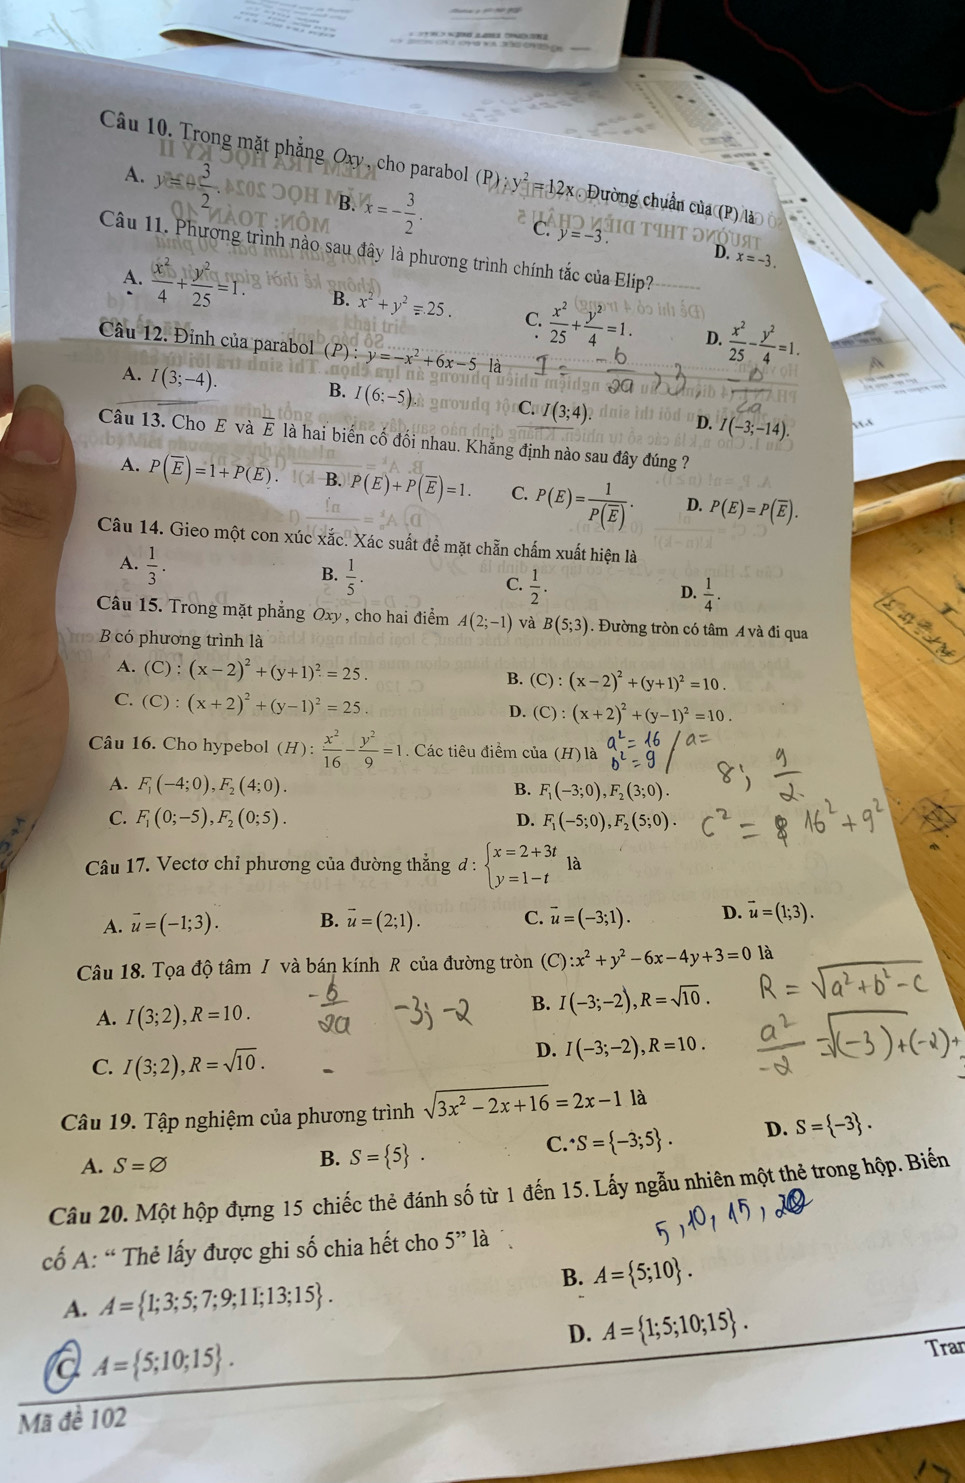 Câu 10. Trong mặt phẳng Oxy, cho parabol (P): y² = 12x. Đường chuẩn của (P) là
A. y = -3/2.
B. x = -3/2.
C. y = -3.
D. x = -3.
Câu 11. Phương trình nào sau đây là phương trình chính tắc của Elip?
A. x²/4 + y²/25 = 1.
B. x² + y² = 25.
C. x²/25 + y²/4 = 1.
D. x²/25 - y²/4 = 1.
Câu 12. Đỉnh của parabol (P): y = -x² + 6x - 5 là
A. I(3;-4).
B. I(6;-5).
C. I(3;4).
D. I(-3;-14).
Câu 13. Cho E và E̅ là hai biến cố đối nhau. Khẳng định nào sau đây đúng ?
A. P(E̅) = 1 + P(E).
B. P(E) + P(E̅) = 1.
C. P(E) = 1/P(E̅).
D. P(E) = P(E̅).
Câu 14. Gieo một con xúc xắc. Xác suất để mặt chẵn chấm xuất hiện là
A. 1/3.
B. 1/5.
C. 1/2.
D. 1/4.
Câu 15. Trong mặt phẳng Oxy, cho hai điểm A(2;-1) và B(5;3). Đường tròn có tâm A và đi qua
B có phương trình là
A. (C): (x-2)² + (y+1)² = 25.
B. (C): (x-2)² + (y+1)² = 10.
C. (C): (x+2)² + (y-1)² = 25.
D. (C): (x+2)² + (y-1)² = 10.
Câu 16. Cho hypebol (H): x²/16 - y²/9 = 1. Các tiêu điểm của (H) là
a² = 16 / a =
b² = 9
8; 9/2
A. F₁(-4;0), F₂(4;0).
B. F₁(-3;0), F₂(3;0).
C. F₁(0;-5), F₂(0;5).
D. F₁(-5;0), F₂(5;0).
c² = 16² + 9²
Câu 17. Vectơ chỉ phương của đường thẳng d: {x = 2+3t
y = 1-t là
A. u⃗ = (-1;3).
B. u⃗ = (2;1).
C. u⃗ = (-3;1).
D. u⃗ = (1;3).
Câu 18. Tọa độ tâm I và bán kính R của đường tròn (C): x² + y² - 6x - 4y + 3 = 0 là
R = √(a² + b² - c
-b/2a
-3; -2
A. I(3;2), R = 10.
B. I(-3;-2), R = √10.
C. I(3;2), R = √10.
D. I(-3;-2), R = 10.
a²/-2 = √(-3) + (-2) +
Câu 19. Tập nghiệm của phương trình √(3x² - 2x + 16) = 2x - 1 là
A. S = ∅
B. S = {5}.
C. S = {-3;5}.
D. S = {-3}.
Câu 20. Một hộp đựng 15 chiếc thẻ đánh số từ 1 đến 15. Lấy ngẫu nhiên một thẻ trong hộp. Biến
cố A: “ Thẻ lấy được ghi số chia hết cho 5” là
5, 10, 15, 20
A. A = {1;3;5;7;9;11;13;15}.
B. A = {5;10}.
C. A = {5;10;15}.
D. A = {1;5;10;15}.
Mã đề 102
Tran